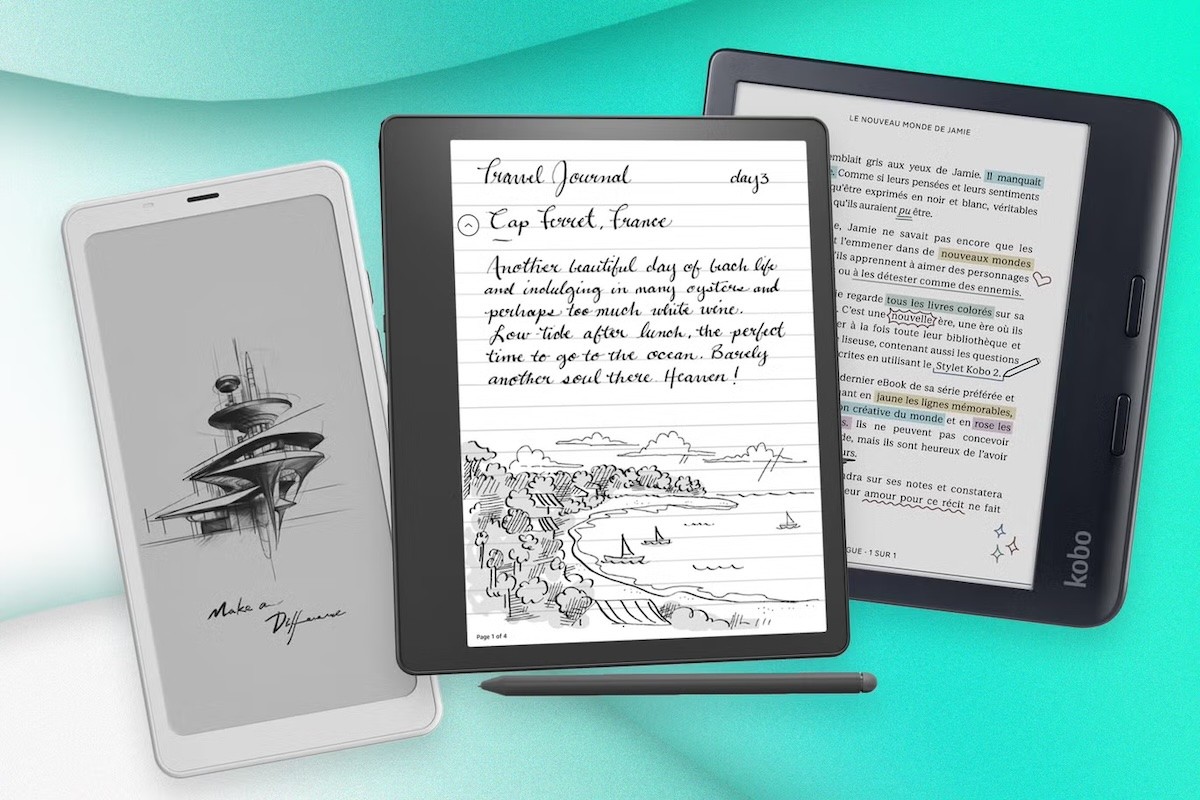 Make a
Difference
Travel Journal
day 3
Cap Ferret, France
Another beautiful day of beach life
and indulging in many oysters and
perhaps too much white wine.
Low tide after lunch, the perfect
time to go to the ocean. Barely
another soul there. Heaven!
Page 1 of 4
LE NOUVEAU MONDE DE JAMIE
mblait gris aux yeux de Jamie. Il manquait
. Comme si leurs pensées et leurs sentiments
qu'être exprimés en noir et blanc, véritables
qu'ils auraient pu être.
e, Jamie ne savait pas encore que les
t l'emmener dans de nouveaux mondes
'ils apprennent à aimer des personnages
ou à les détester comme des ennemis.
e regarde tous les livres colorés sur sa
. C'est une nouvelle ère, une ère où ils
er à la fois toute leur bibliothèque et
liseuse, contenant aussi les questions
crites en utilisant le Stylet Kobo 2.
dernier eBook de sa série préférée et
nant en jaune les lignes mémorables,
on créative du monde et en rose les
s. Ils ne peuvent pas concevoir
de, mais ils sont heureux de l'avoir
urs.
ndra sur ses notes et constatera
eur amour pour ce récit ne fait
GUE · 1 SUR 1
kobo